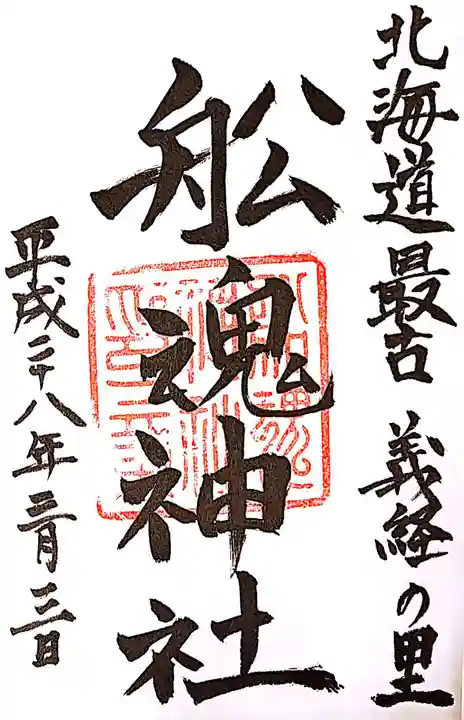 北海道最古 義経の里
舩魂神社
平成二十八年三月三日